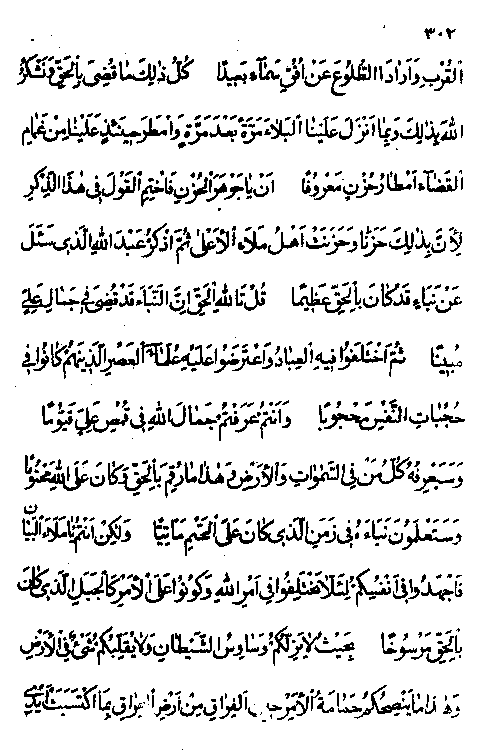 ٣٠٢
القرب و اراد الطلوع عن افق سمآء بعيدا كل ذلك ما قضى بالحق و نشكر
الله بذلك و بما انزل علينا البلاء مرة بعد مرة و امطر حينئذ علينا من غمام
القضآء امطار حزن معروفا ان يا جوهر الحزن فاختم القول فى هذا الذكر
لأن بذلك حزنا و حزنت اهل ملاء الأعلى ثم اذكر عبد الله الذى سئل
عن نباء قد كان بالحق عظيما قل تا لله الحق ان النباء قد قضى فى جمال على
مبينا ثم اختلفوا فيه العباد و اعترضوا عليه علمآء العصر الذينهم كانوا فى
حجبات النفس محجوبا و انتم عرفتم جمال الله فى قمص على قيوما
و سيعرفه كل من فى السموات و الأرض و هذا ما رقم بالحق و كان على الله محتوما
و ستعلمون نباءه فى زمن الذى كان على الحتم ماتيا ولكن انتم يا ملاء البيان
فاجهدوا فى انفسكم لئلا تختلفوا فى امر الله و كونوا على الأمر كالجبل الذى كان
بالحق مرسوخا بحيث لا يزلكم وساوس الشيطان و لا يقلبكم شئ فى الأرض
و هذا ما ينصحكم حمامة الأمر حين الفراق من ارض العراق بما اكتسبت ايدى